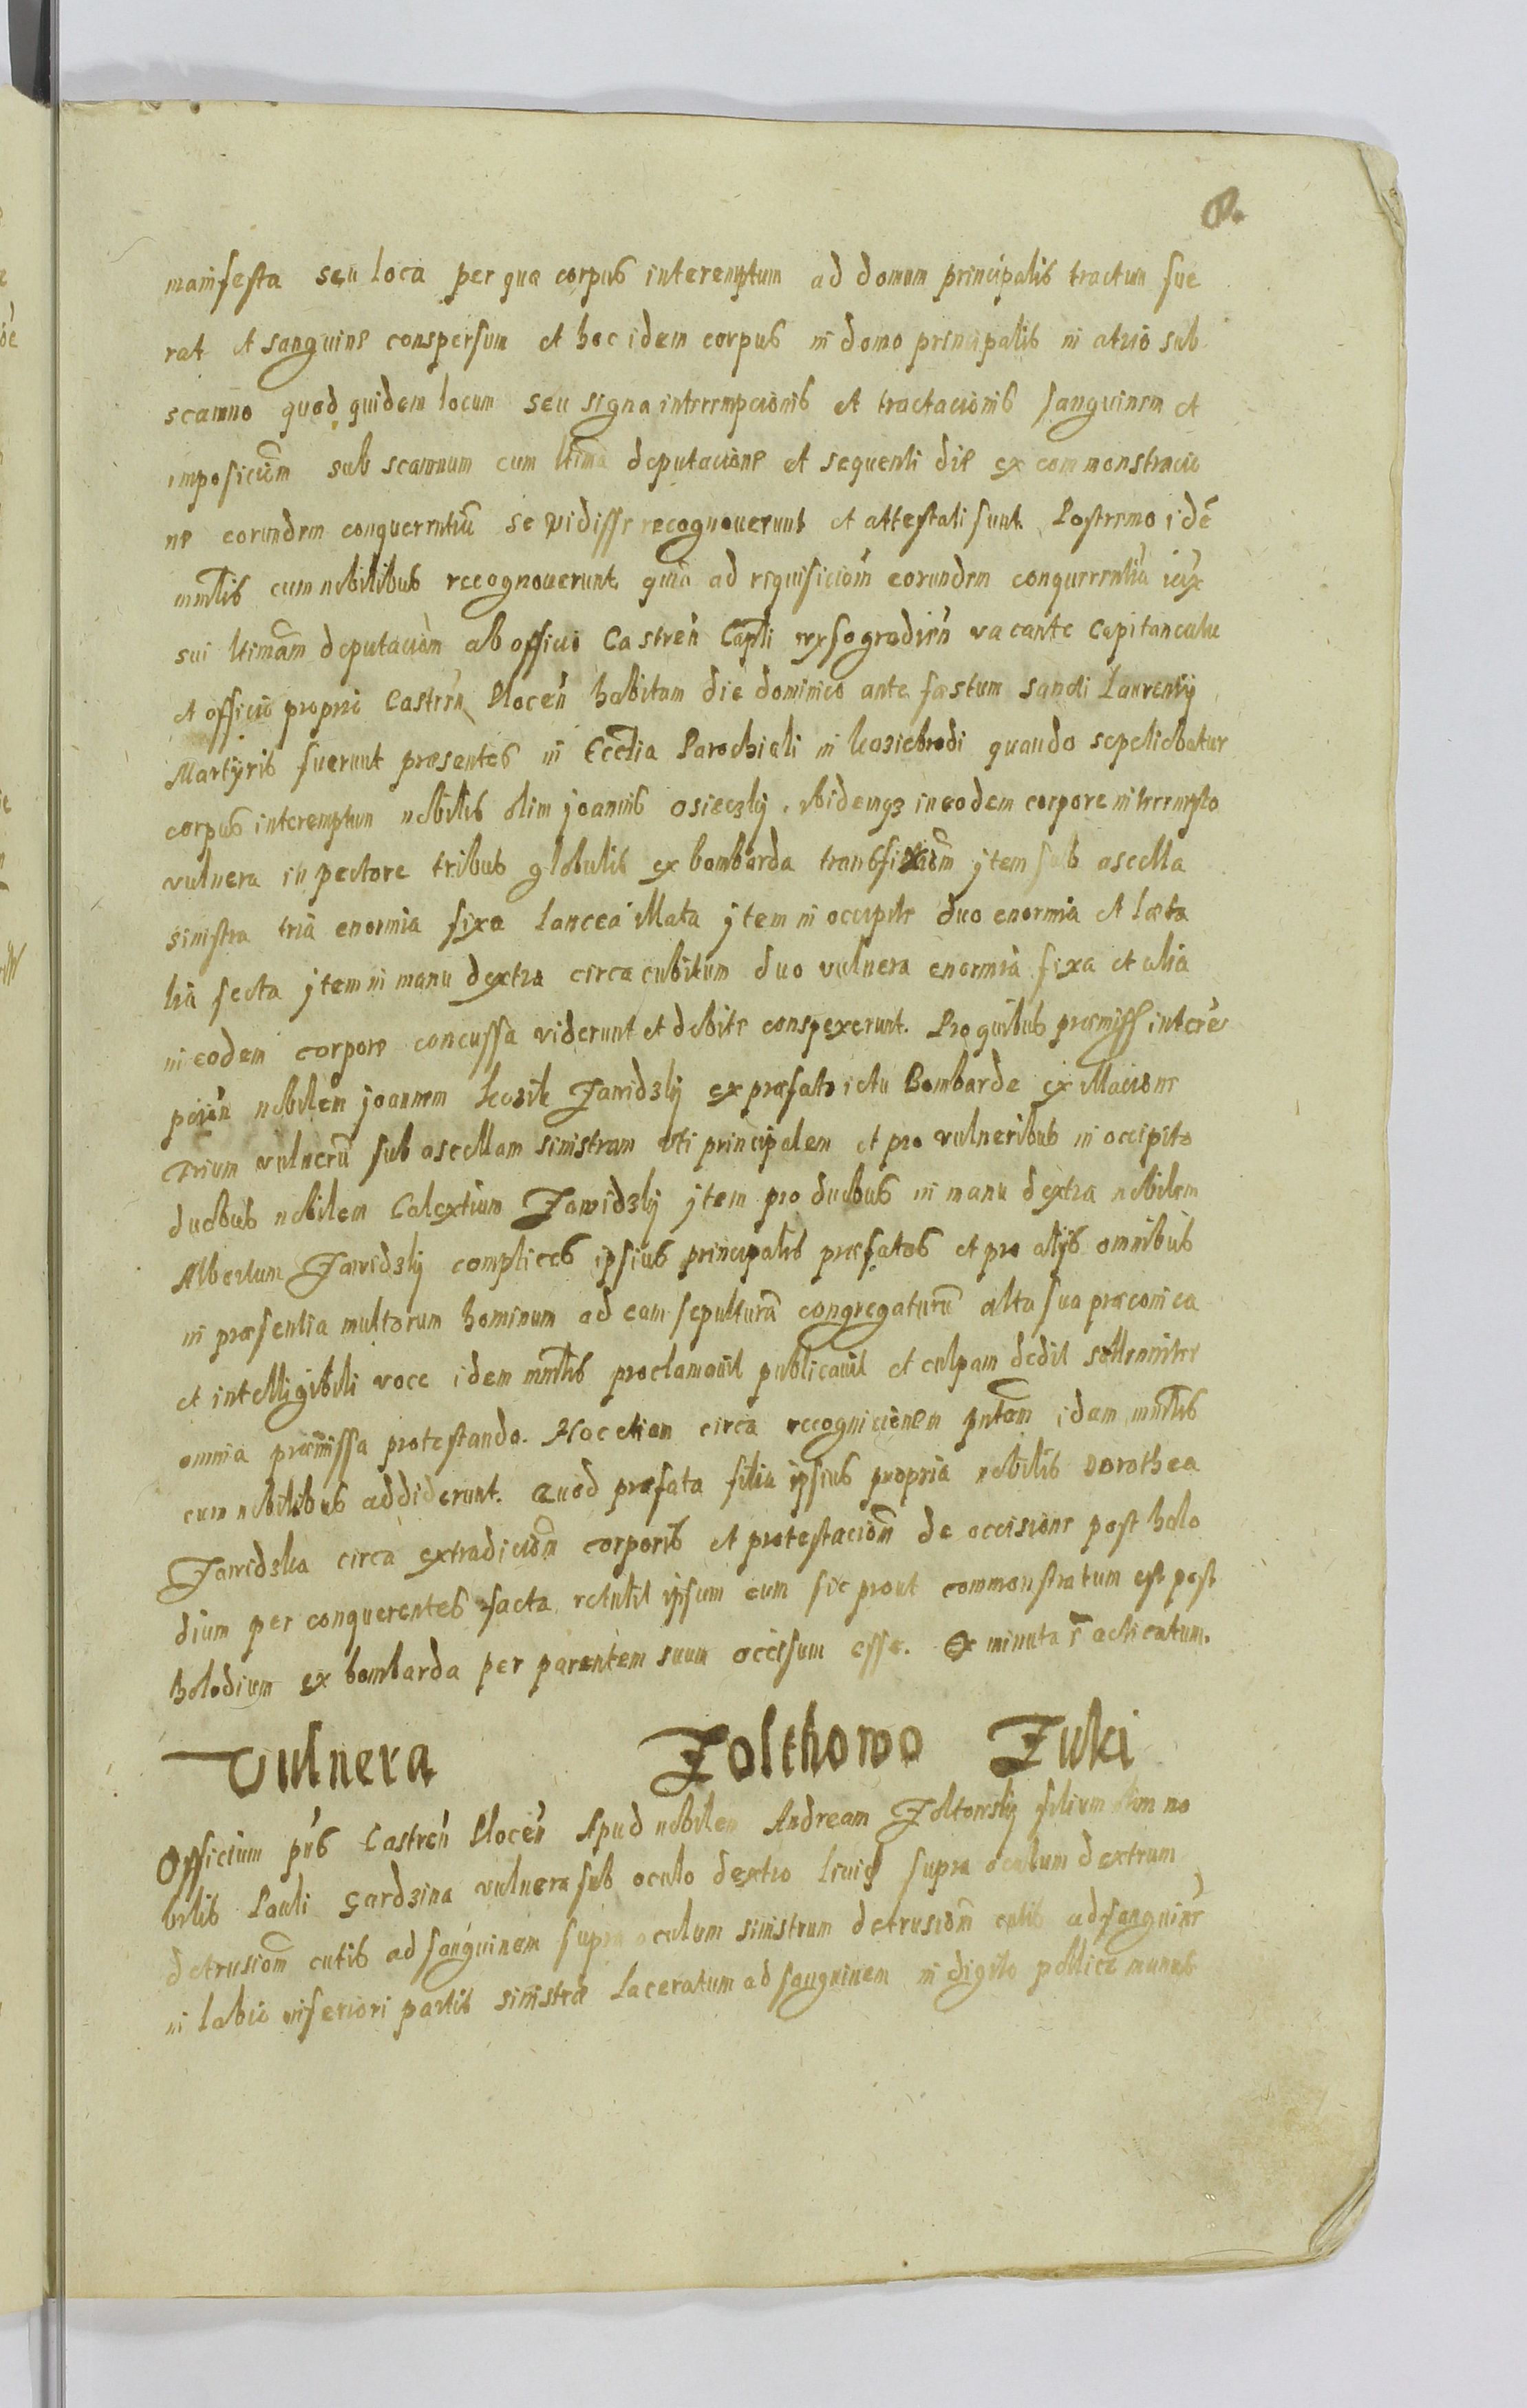 8.
manifesta seu loca per quæ corpus interemptum ad domum principalis tractum fue
rat et sanguine conspersum et hoc idem corpus in domo principalis in atrio sub
scamno quod quidem locum seu signa interempcionis et tractacionis sanguinem et
imposiciom̃ sub scamnum cum ltima deputacione et sequenti die ex commonstracio
ne eorundem conquerentiũ se vidisse recognouerunt et attestati sunt. Postremo idẽ
mnlis cum nobilibus recognouerunt quia ad requisiciom̃ eorundem conquerentiũ iux
sui ltimam̃ deputaciom̃ ab officio Castreñ Capli wyssogrodieñ vacante Capitaneatu
et officio proprio Castreñ Ploceñ habitam die dominico ante fæstum sancti Laurentij
Martÿris fuerunt præsentes in Ecclia Parochiali in koziebrodi quando sepeliebatur
corpus interemptum nobilis olim joannis osieczkj. Ibidemqz in eodem corpore interempto
vulnera in pectore tribus globulis ex bombarda transfixiom̃ jtem sub ascella
sinistra tria enormia fixa lancea illata jtem in occipite duo enormia et læta
lia secta jtem in manu dextra circa cubitum duo vulnera enormia fixa et alia
in eodem corpore concussa viderunt et debite conspexerunt. Pro quibus præmiss intere
pciõn nobilem joannem kozik Zawidzkj ex præfato ictu Bombarde ex illacione
Trium vulnerũ sub ascellam sinistram uti principalem et pro vulneribus in occipite
duobus nobilem Calextium Zawidzkj jtem pro duobus in manu dextra nobilem
Albertum Zawidzkj complices ipsius principalis præfatos et pro alijs omnibus
in præsentia multorum hominum ad eam sepulturã congregatarũ alta sua præconica
et intelligibili voce idem mnlis proclamauit publicauit et culpam dedit sollemniter
omnia præmissa protestando. Hoc etiam circa recognicionem pntem̃ idem mnlis
cum nobilibus addiderunt. Quod præfata filia ipsius propria nobilis Dorothea
Zawidzka circa extradiciom̃ corporis et protestaciom̃ de occisione post holo
dium per conquerentes facta retulit ipsum eum sic prout commonstratum est post
holodium ex bombarda per parentem suum occisum esse. Ex minuta r̃ acticatum.
Vulnera Zolthowo Zuki
Officium pñs Castreñ Ploceñ Apud nobilem Andream Zoltowskj filium olim no
bilis Pauli Gardzina vulnera sub oculo dextro liuid supra oculum dextrum
detrusiom̃ cutis ad sanguinem supra oculum sinistrum detrusiom̃ cutis ad sanguinẽ
in labio inferiori partis sinistræ laceratum ad sanguinem in digito pollice manus